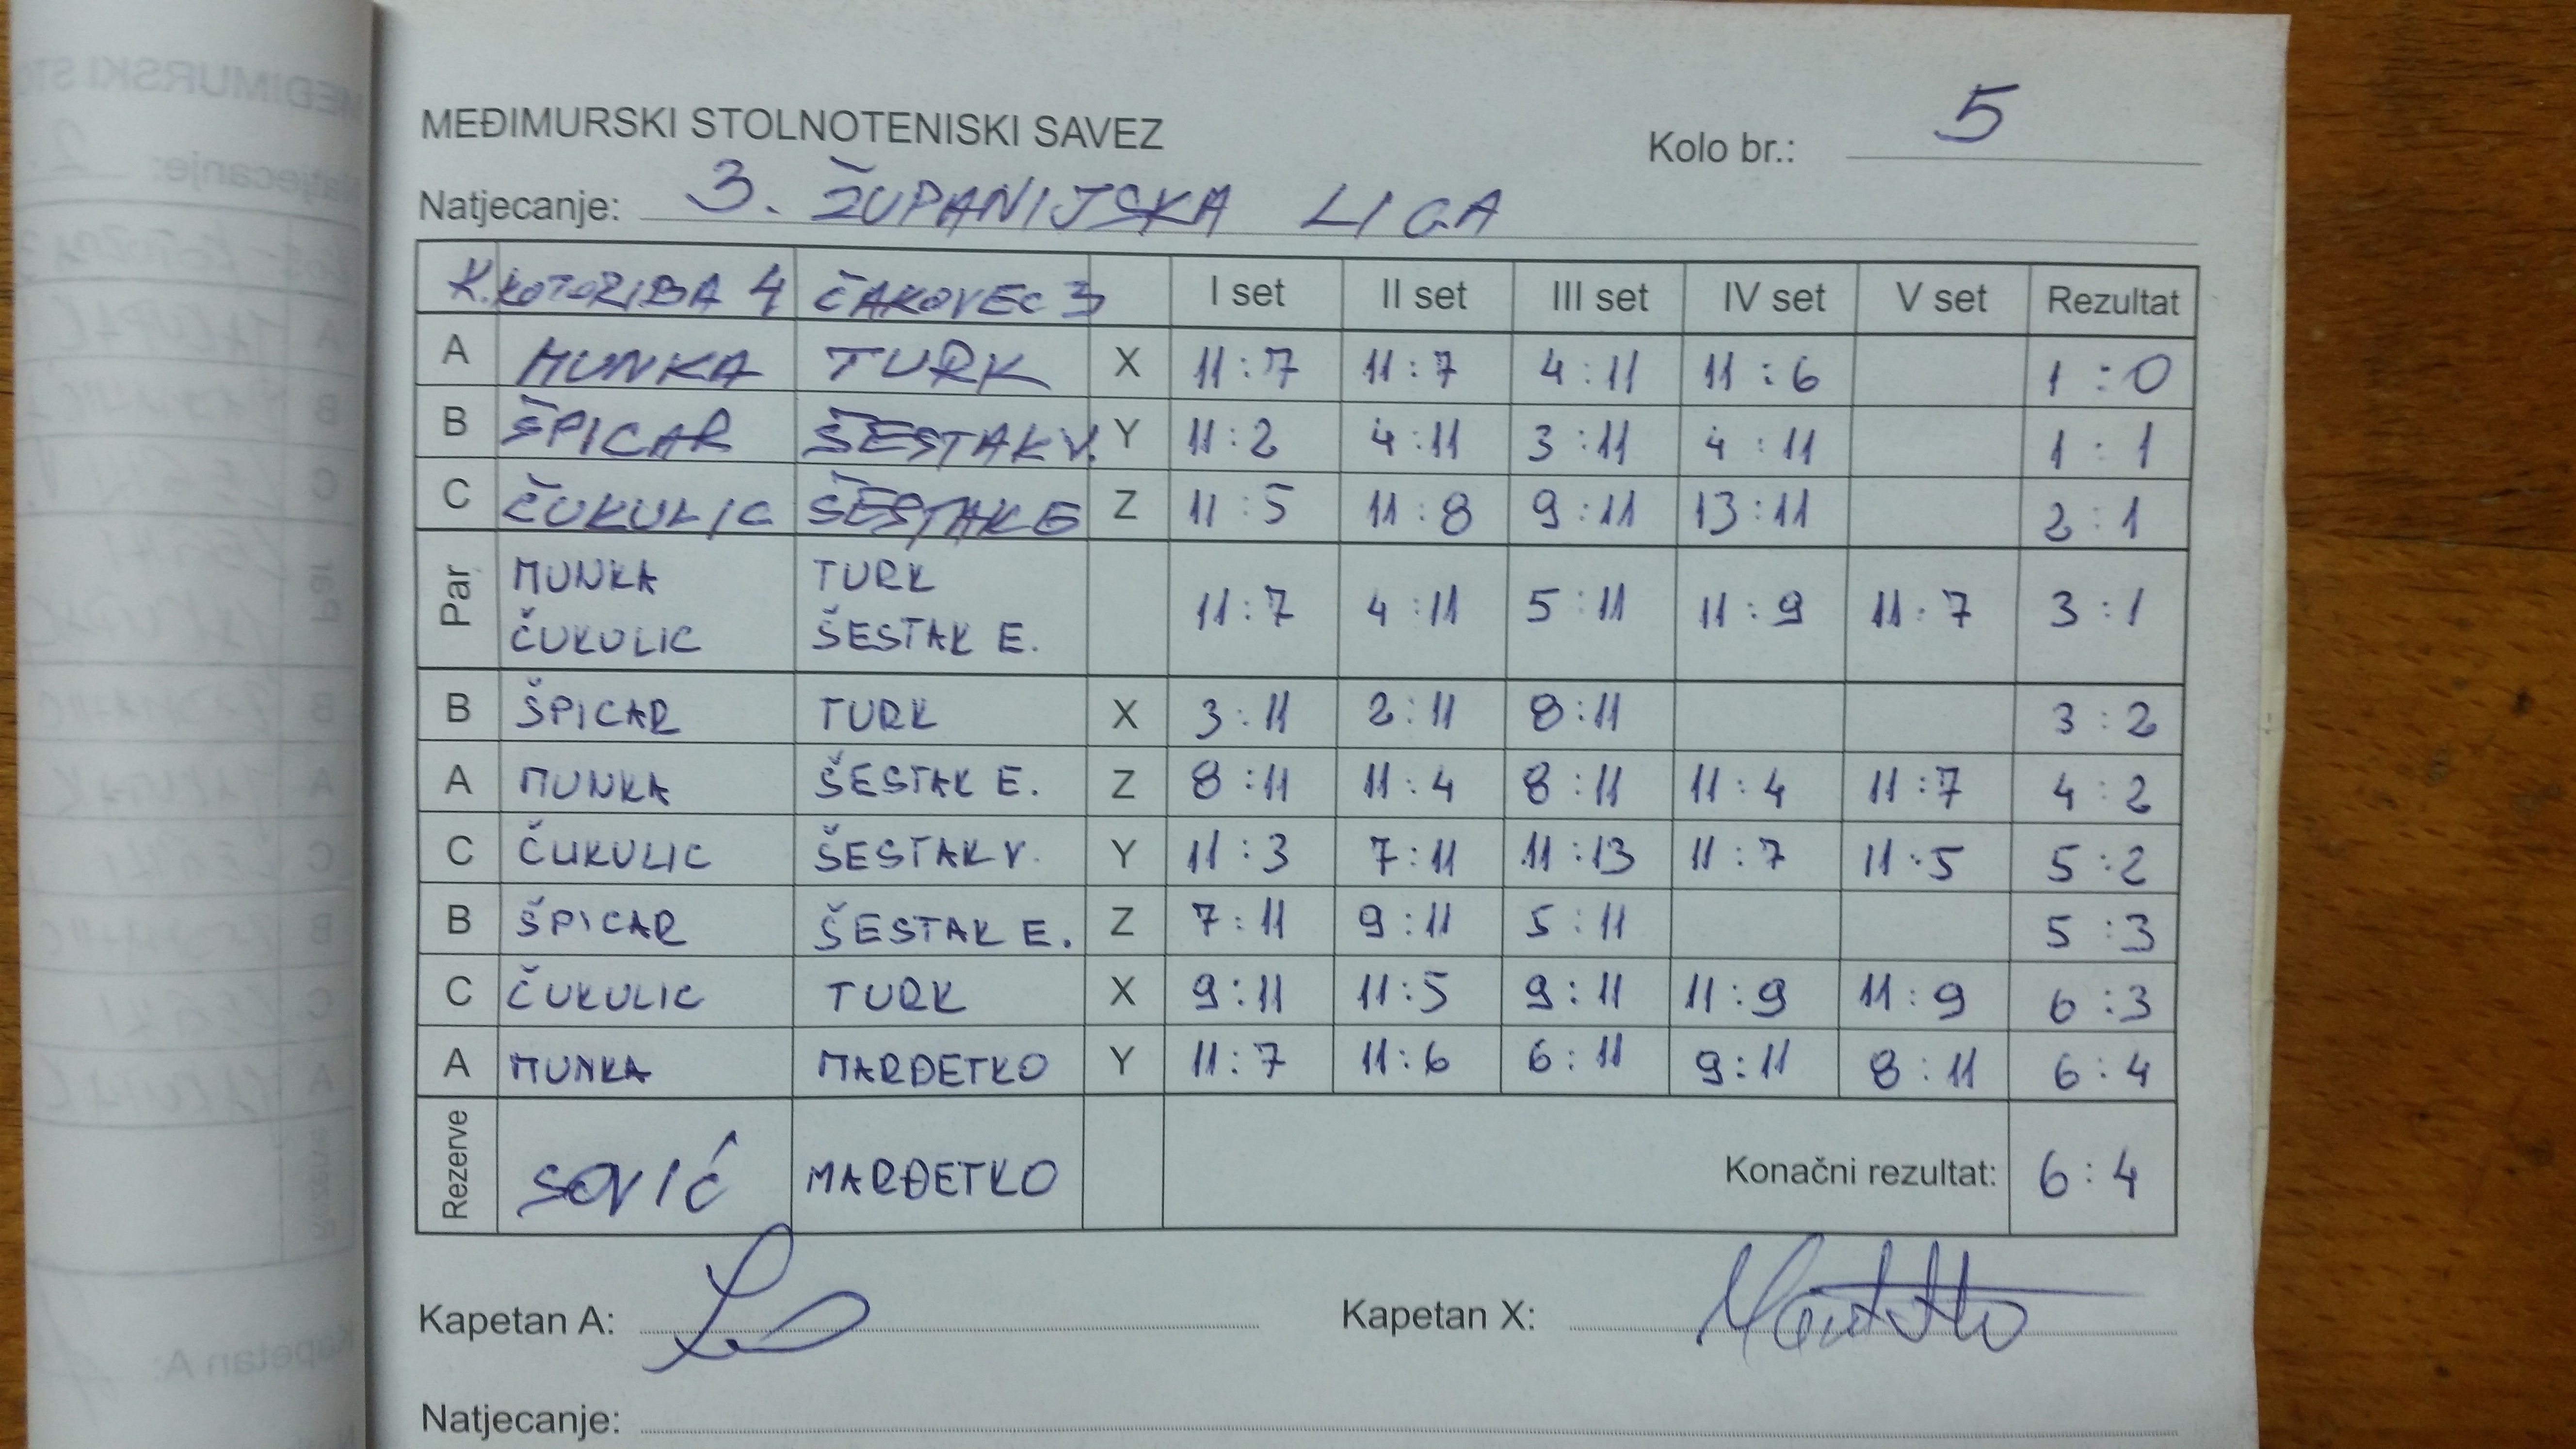 MEĐIMURSKI STOLNOTENISKI SAVEZ
Kolo br.: 5
Natjecanje: 3. ŽUPANIJSKA LIGA
K.KOTORIBA 4 ČAKOVEC 3 I set II set III set IV set V set Rezultat
A MUNKA TURK X 11:7 11:7 4:11 11:6 1:0
B ŠPICAR ŠESTAK V. Y 11:2 4:11 3:11 4:11 1:1
C ČUKULIC ŠESTAK E Z 11:5 11:8 9:11 13:11 2:1
Par MUNKA TURK 11:7 4:11 5:11 11:9 11:7 3:1
ČUKULIC ŠESTAK E.
B ŠPICAR TURK X 3:11 2:11 8:11 3:2
A MUNKA ŠESTAK E. Z 8:11 11:4 8:11 11:4 11:7 4:2
C ČUKULIC ŠESTAK V. Y 11:3 7:11 11:13 11:7 11:5 5:2
B ŠPICAR ŠESTAK E. Z 7:11 9:11 5:11 5:3
C ČUKULIC TURK X 9:11 11:5 9:11 11:9 11:9 6:3
A MUNKA MARĐETKO Y 11:7 11:6 6:11 9:11 8:11 6:4
Rezerve SOVIĆ MARĐETKO Konačni rezultat: 6:4
Kapetan A: Kapetan X:
Natjecanje: